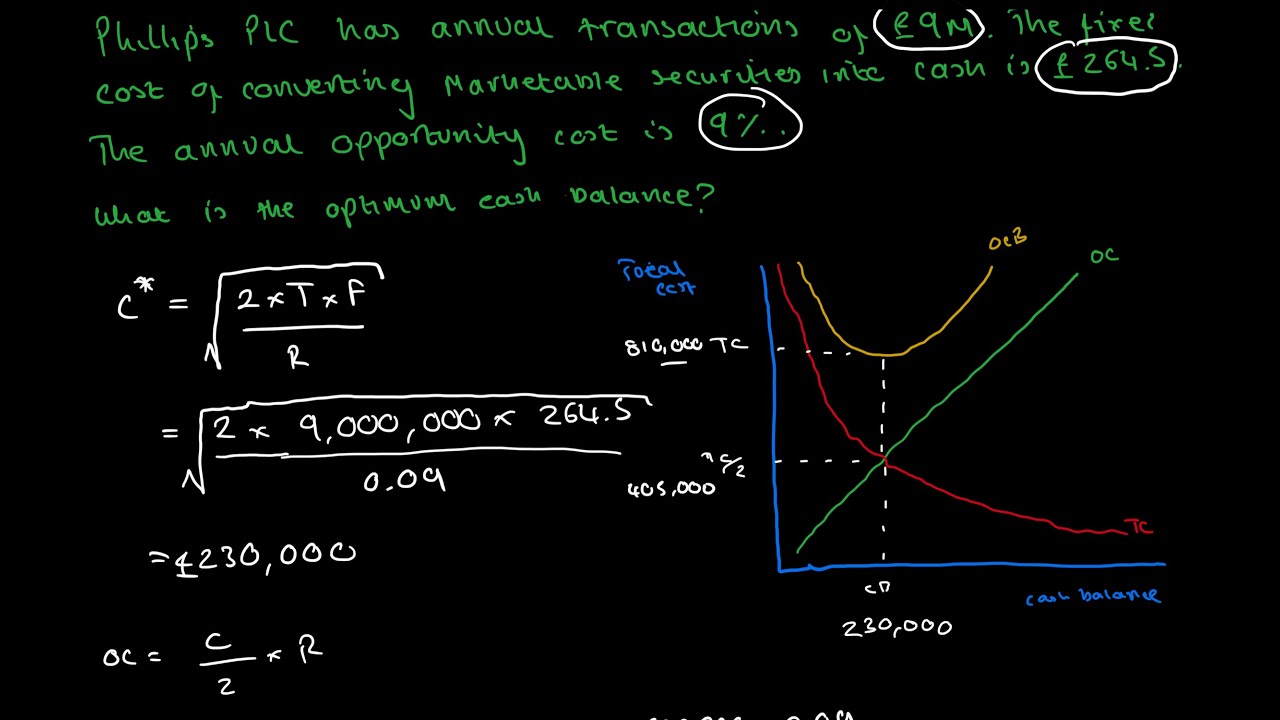 Phillips PLC has annual transactions of £9M. The fixed
cost of converting Marketable securities into cash is £264.5.
The annual opportunity cost is 9%.
What is the optimum cash balance?
C* = √ 2 × T × F
R
= √ 2 × 9,000,000 × 264.5
0.09
= £230,000
OC = C × R
2
Total
cost
OCB
OC
810,000 TC
C/2
405,000
TC
CB
cash balance
230,000
0.09